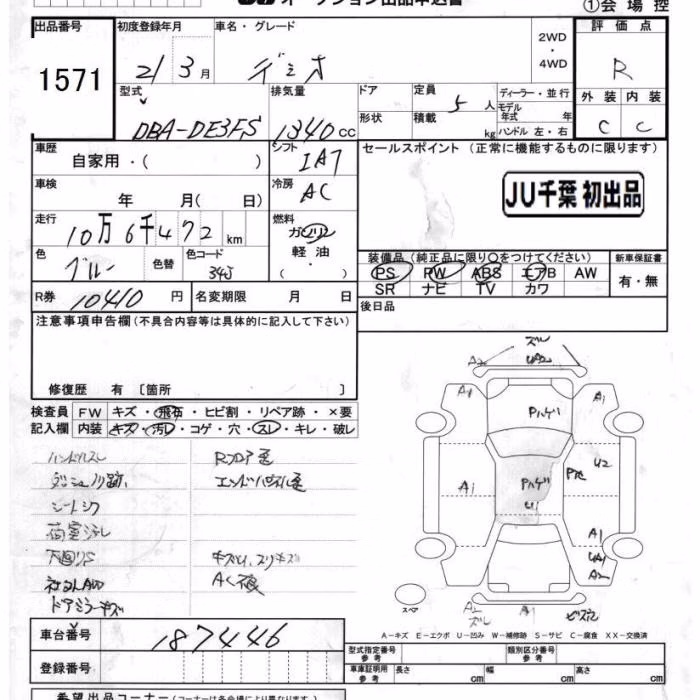 オークション出品申込書 ①会場控
出品番号 初度登録年月 車名・グレード 評価点
1571 21年3月 デミオ 2WD・4WD R
型式 排気量 ドア 定員 ディーラー・並行 外装 内装
DBA-DE3FS 1340cc 形状 5人 積載 kg モデル年式 年 ハンドル 左・右 C C
車歴 シフト セールスポイント (正常に機能するものに限ります)
自家用・( ) IAT
車検 冷房 JU千葉 初出品
年 月( 日) AC
走行 燃料
10万6千472km ガソリン
軽油
色 色替 色コード 装備品(純正品に限り○をつけてください) 新車保証書
ブルー 34J PS PW ABS エアB AW 有・無
SR ナビ TV カワ
R券 10410円 名変期限 月 日 後日品
注意事項申告欄(不具合内容等は具体的に記入して下さい)
修復歴 有〔箇所 〕
検査員 FW キズ・飛石・ヒビ割・リペア跡・×要
記入欄 内装 キズ・汚レ・コゲ・穴・スレ・キレ・破レ
ハンドルスレ Rフロア歪
ダッシュノリ跡 エンドパネル歪
シートシワ
荷室汚レ
下回リS キズ凹、スリキズ
社外AW AC痕
ドアミラーキズ
ズレ
A2 UA2
A1 A1
Pハゲ
A1 Pハゲ U2
U1
A1
UA1
A2
スペア A2 A1
ズレ
A-キズ E-エクボ U-凹み W-補修跡 S-サビ C-腐食 XX-交換済
車台番号 187446 型式指定参考番号 類別区分番号参考
登録番号 車庫証明用参考 長さ cm 幅 cm 高さ cm
希望出品コーナー(コーナーは各会場により異なります)